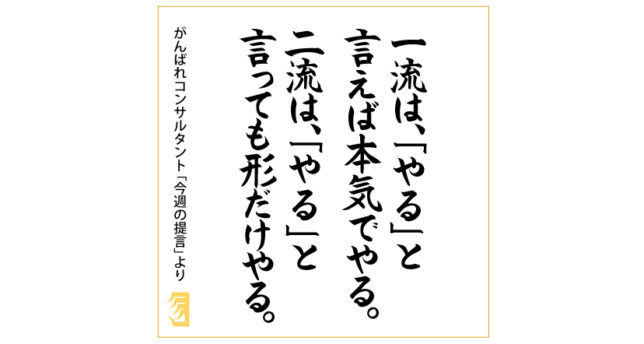 一流は、「やる」と
言えば本気でやる。
二流は、「やる」と
言っても形だけやる。
がんばれコンサルタント「今週の提言」より